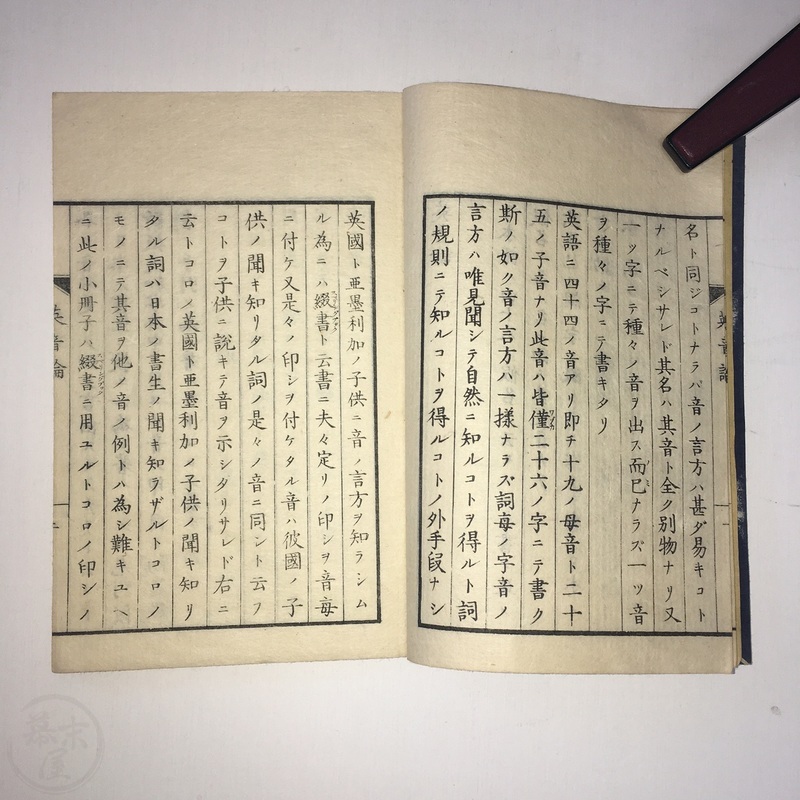 名ト同ジコトナラバ音ノ言方ハ甚ダ易キコト
ナルベシサレド其名ハ其音ト全ク別物ナリ又
一ッ字ニテ種々ノ音ヲ出ス而已ナラズ一ッ音
ヲ種々ノ字ニテ書キタリ
英語ニ四十四ノ音アリ即チ十九ノ母音ト二十
五ノ子音ナリ此音ハ皆僅二十六ノ字ニテ書ク
斯ノ如ク音ノ言方ハ一様ナラズ詞毎ノ字音ノ
言方ハ唯見聞シテ自然ニ知ルコトヲ得ルト詞
ノ規則ニテ知ルコトヲ得ルコトノ外手段ナシ
英國ト亜墨利加ノ子供ニ音ノ言方ヲ知ラシム
ル為ニハ綴書ト云書ニ夫々定リノ印シヲ音毎
ニ付ケ又是々ノ印シヲ付ケタル音ハ彼國ノ子
供ノ聞キ知リタル詞ノ是々ノ音ニ同ント云フ
コトヲ子供ニ説キテ音ヲ示シタリサレド右ニ
云トコロノ英國ト亜墨利加ノ子供ノ聞キ知リ
タル詞ハ日本ノ書生ノ聞キ知ラザルトコロノ
モノニテ其音ヲ他ノ音ノ例トハ為シ難キユヘ
ニ此ノ小冊子ハ綴書ニ用ユルトコロノ印シノ
英音論
幕末屋